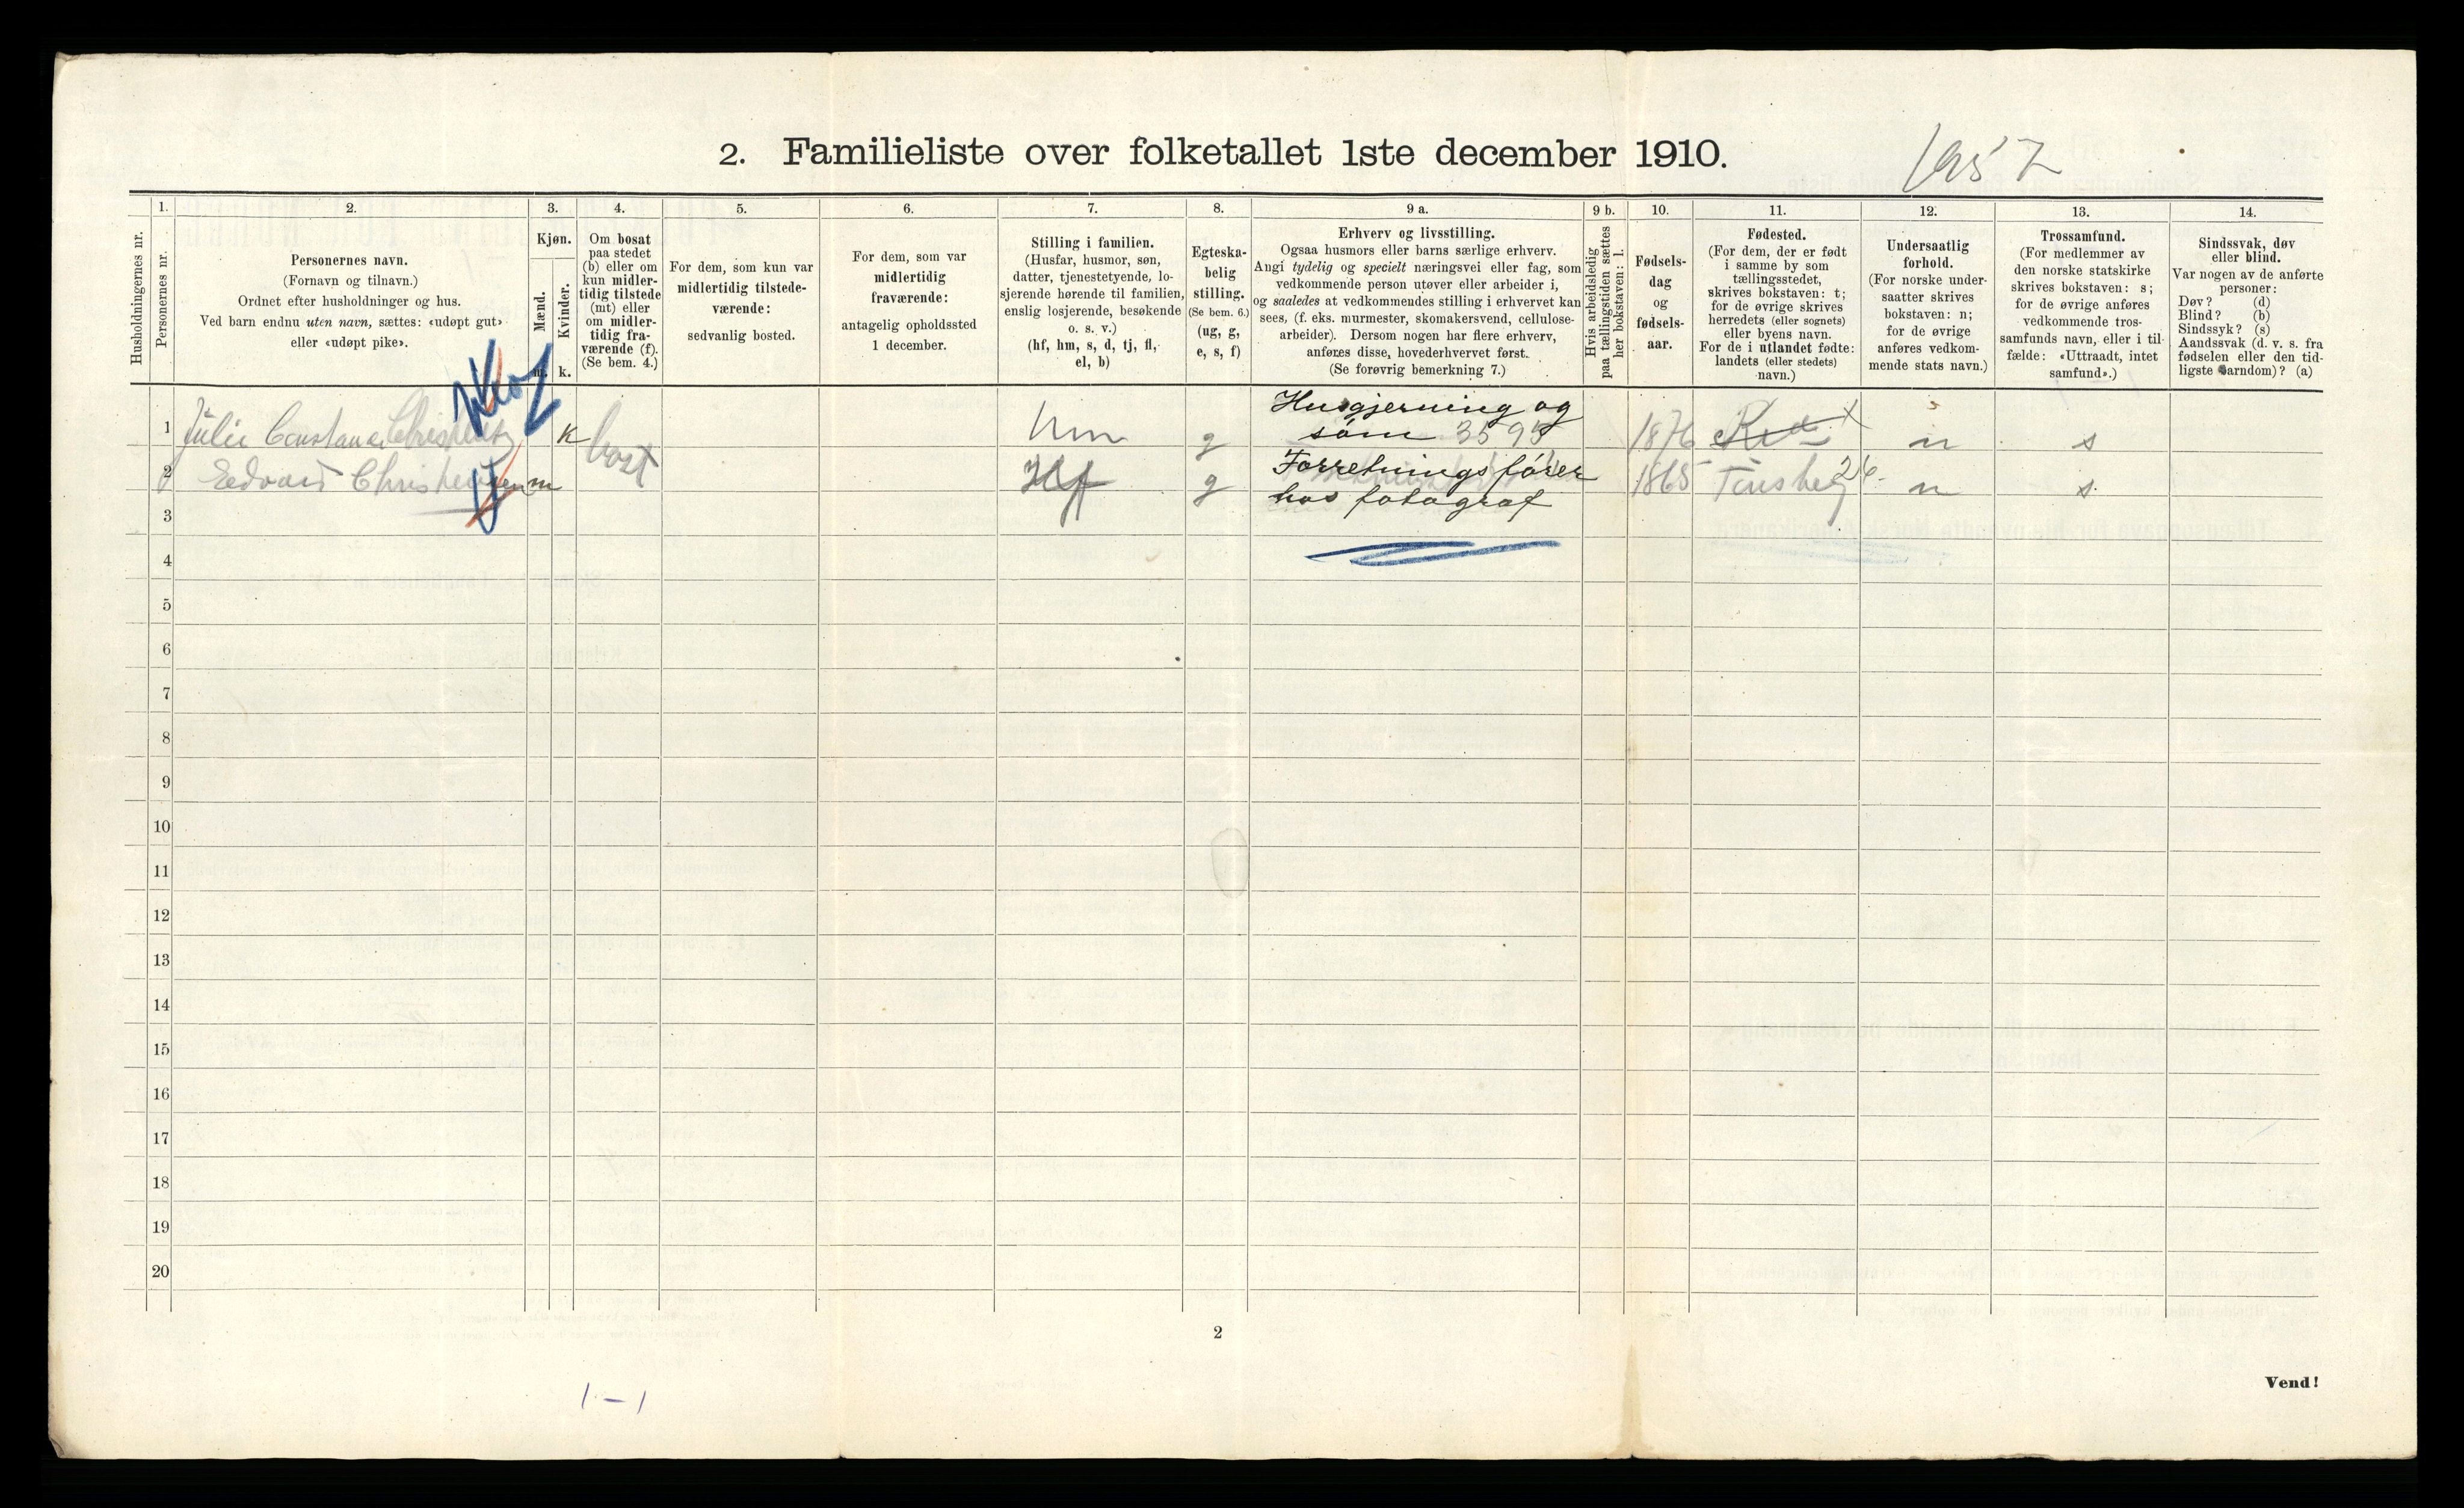 2. Familieliste over folketallet 1ste december 1910.
1957
Husholdningernes nr.
1.
Personernes nr.
2.
Personernes navn.
(Fornavn og tilnavn.)
Ordnet efter husholdninger og hus.
Ved barn endnu uten navn, sættes: «udøpt gut»
eller «udøpt pike».
3.
Kjøn.
Mænd.
Kvinder.
m.
k.
4.
Om bosat
paa stedet
(b) eller om
kun midler-
tidig tilstede
(mt) eller
om midler-
tidig fra-
værende (f).
(Se bem. 4.)
5.
For dem, som kun var
midlertidig tilstede-
værende:
sedvanlig bosted.
6.
For dem, som var
midlertidig
fraværende:
antagelig opholdssted
1 december.
7.
Stilling i familien.
(Husfar, husmor, søn,
datter, tjenestetyende, lo-
sjerende hørende til familien,
enslig losjerende, besøkende
o. s. v.)
(hf, hm, s, d, tj, fl,
el, b)
8.
Egteska-
belig
stilling.
(Se bem. 6.)
(ug, g,
e, s, f)
9 a.
Erhverv og livsstilling.
Ogsaa husmors eller barns særlige erhverv.
Angi tydelig og specielt næringsvei eller fag, som
vedkommende person utøver eller arbeider i,
og saaledes at vedkommendes stilling i erhvervet kan
sees, (f. eks. murmester, skomakersvend, cellulose-
arbeider). Dersom nogen har flere erhverv,
anføres disse, hovederhvervet først.
(Se forøvrig bemerkning 7.)
9 b.
Hvis arbeidsledig
paa tællingstiden sættes
her bokstaven: l.
10.
Fødsels-
dag
og
fødsels-
aar.
11.
Fødested.
(For dem, der er født
i samme by som
tællingsstedet,
skrives bokstaven: t;
for de øvrige skrives
herredets (eller sognets)
eller byens navn.
For de i utlandet fødte:
landets (eller stedets)
navn.)
12.
Undersaatlig
forhold.
(For norske under-
saatter skrives
bokstaven: n;
for de øvrige
anføres vedkom-
mende stats navn.)
13.
Trossamfund.
(For medlemmer av
den norske statskirke
skrives bokstaven: s;
for de øvrige anføres
vedkommende tros-
samfunds navn, eller i til-
fælde: «Uttraadt, intet
samfund».)
14.
Sindssvak, døv
eller blind.
Var nogen av de anførte
personer:
Døv? (d)
Blind? (b)
Sindssyk? (s)
Aandssvak (d. v. s. fra
fødselen eller den tid-
ligste barndom)? (a)
1 Julie k hm g Husgjerning og
søm 3595 1876 n s
2 Edvard Christensen m Hf g Forretningsfører
hos fotograf 1865 Tønsberg n s
3
4
5
6
7
8
9
10
11
12
13
14
15
16
17
18
19
20
2
Vend!
1 – 1